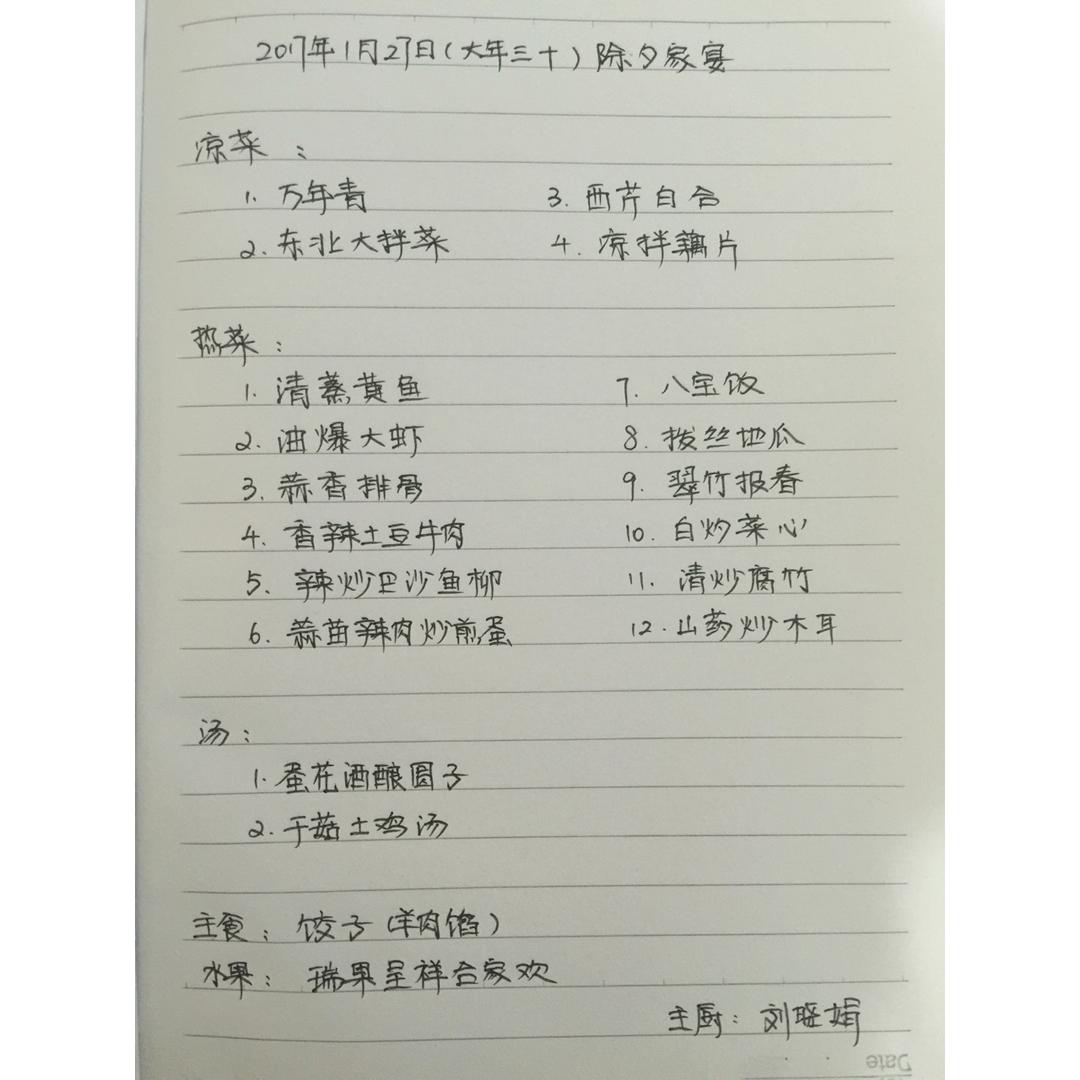 2017年1月27日(大年三十)除夕家宴
凉菜:
1. 万年青 3. 西芹百合
2. 东北大拌菜 4. 凉拌藕片
热菜:
1. 清蒸黄鱼 7. 八宝饭
2. 油爆大虾 8. 拨丝地瓜
3. 蒜香排骨 9. 翠竹报春
4. 香辣土豆牛肉 10. 白灼菜心
5. 辣炒巴沙鱼柳 11. 清炒腐竹
6. 蒜苗辣肉炒煎蛋 12. 山药炒木耳
汤:
1. 蛋花酒酿圆子
2. 干菇土鸡汤
主食: 饺子(羊肉馅)
水果: 瑞果呈祥合家欢
主厨: 刘瑶娟
Date